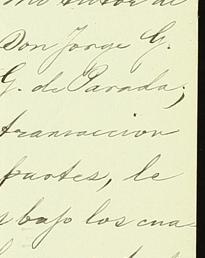 mi tutor de
Don Jorge G.
G. de Parada;
transaccion
partes, le
bajo los cua-